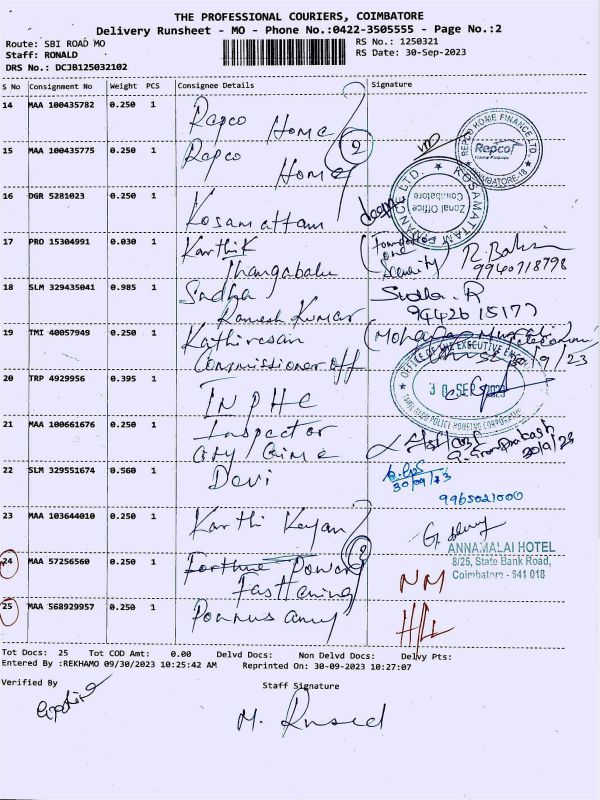 THE PROFESSIONAL COURIERS, COIMBATORE
Delivery Runsheet - MO - Phone No.:0422-3505555 - Page No.:2
Route: SBI ROAD MO
RS No.: 1250321
Staff: RONALD
RS Date: 30-Sep-2023
DRS No.: DCJB125032102
S No Consignment No Weight PCS Consignee Details Signature
14 MAA 100435782 0.250 1 Repco Home
15 MAA 100435775 0.250 1 Repco Home
REPCO HOME FINANCE LTD.
Repco
Home Finance
COIMBATORE-18
16 OGR 5281023 0.250 1 Kosamattam
KOSAMATTAM FINANCE LTD.
Zonal Office
Coimbatore
17 PRO 15304991 0.030 1 Karthik
Thangabalu
Security)
9940718798
18 SLM 329435041 0.985 1 Sudha
Ramesh Kumar
Sudha. R
9442615177
19 TMI 40057949 0.250 1 Kathiresan
Commissioner off
30/9/23
20 TRP 4929956 0.395 1 TNPHC
OFFICE OF THE EXECUTIVE
30 SEP 2023
TAMIL NADU POLICE HOUSING CORPORATION
21 MAA 100661676 0.250 1 Inspector
City Crime
30/9/23
22 SLM 329551674 0.560 1 Devi
30/09/23
9965021000
23 MAA 103644010 0.250 1 Karthi Keyan
ANNAMALAI HOTEL
8/25, State Bank Road,
Coimbatore - 641 018
24 MAA 57256560 0.250 1 Fortune Power
Fasthening
NM
25 MAA 568929957 0.250 1 Ponnusamy
Tot Docs: 25 Tot COD Amt: 0.00 Delvd Docs: Non Delvd Docs: Delvy Pts:
Entered By :REKHAMO 09/30/2023 10:25:42 AM Reprinted On: 30-09-2023 10:27:07
Verified By
Staff Signature